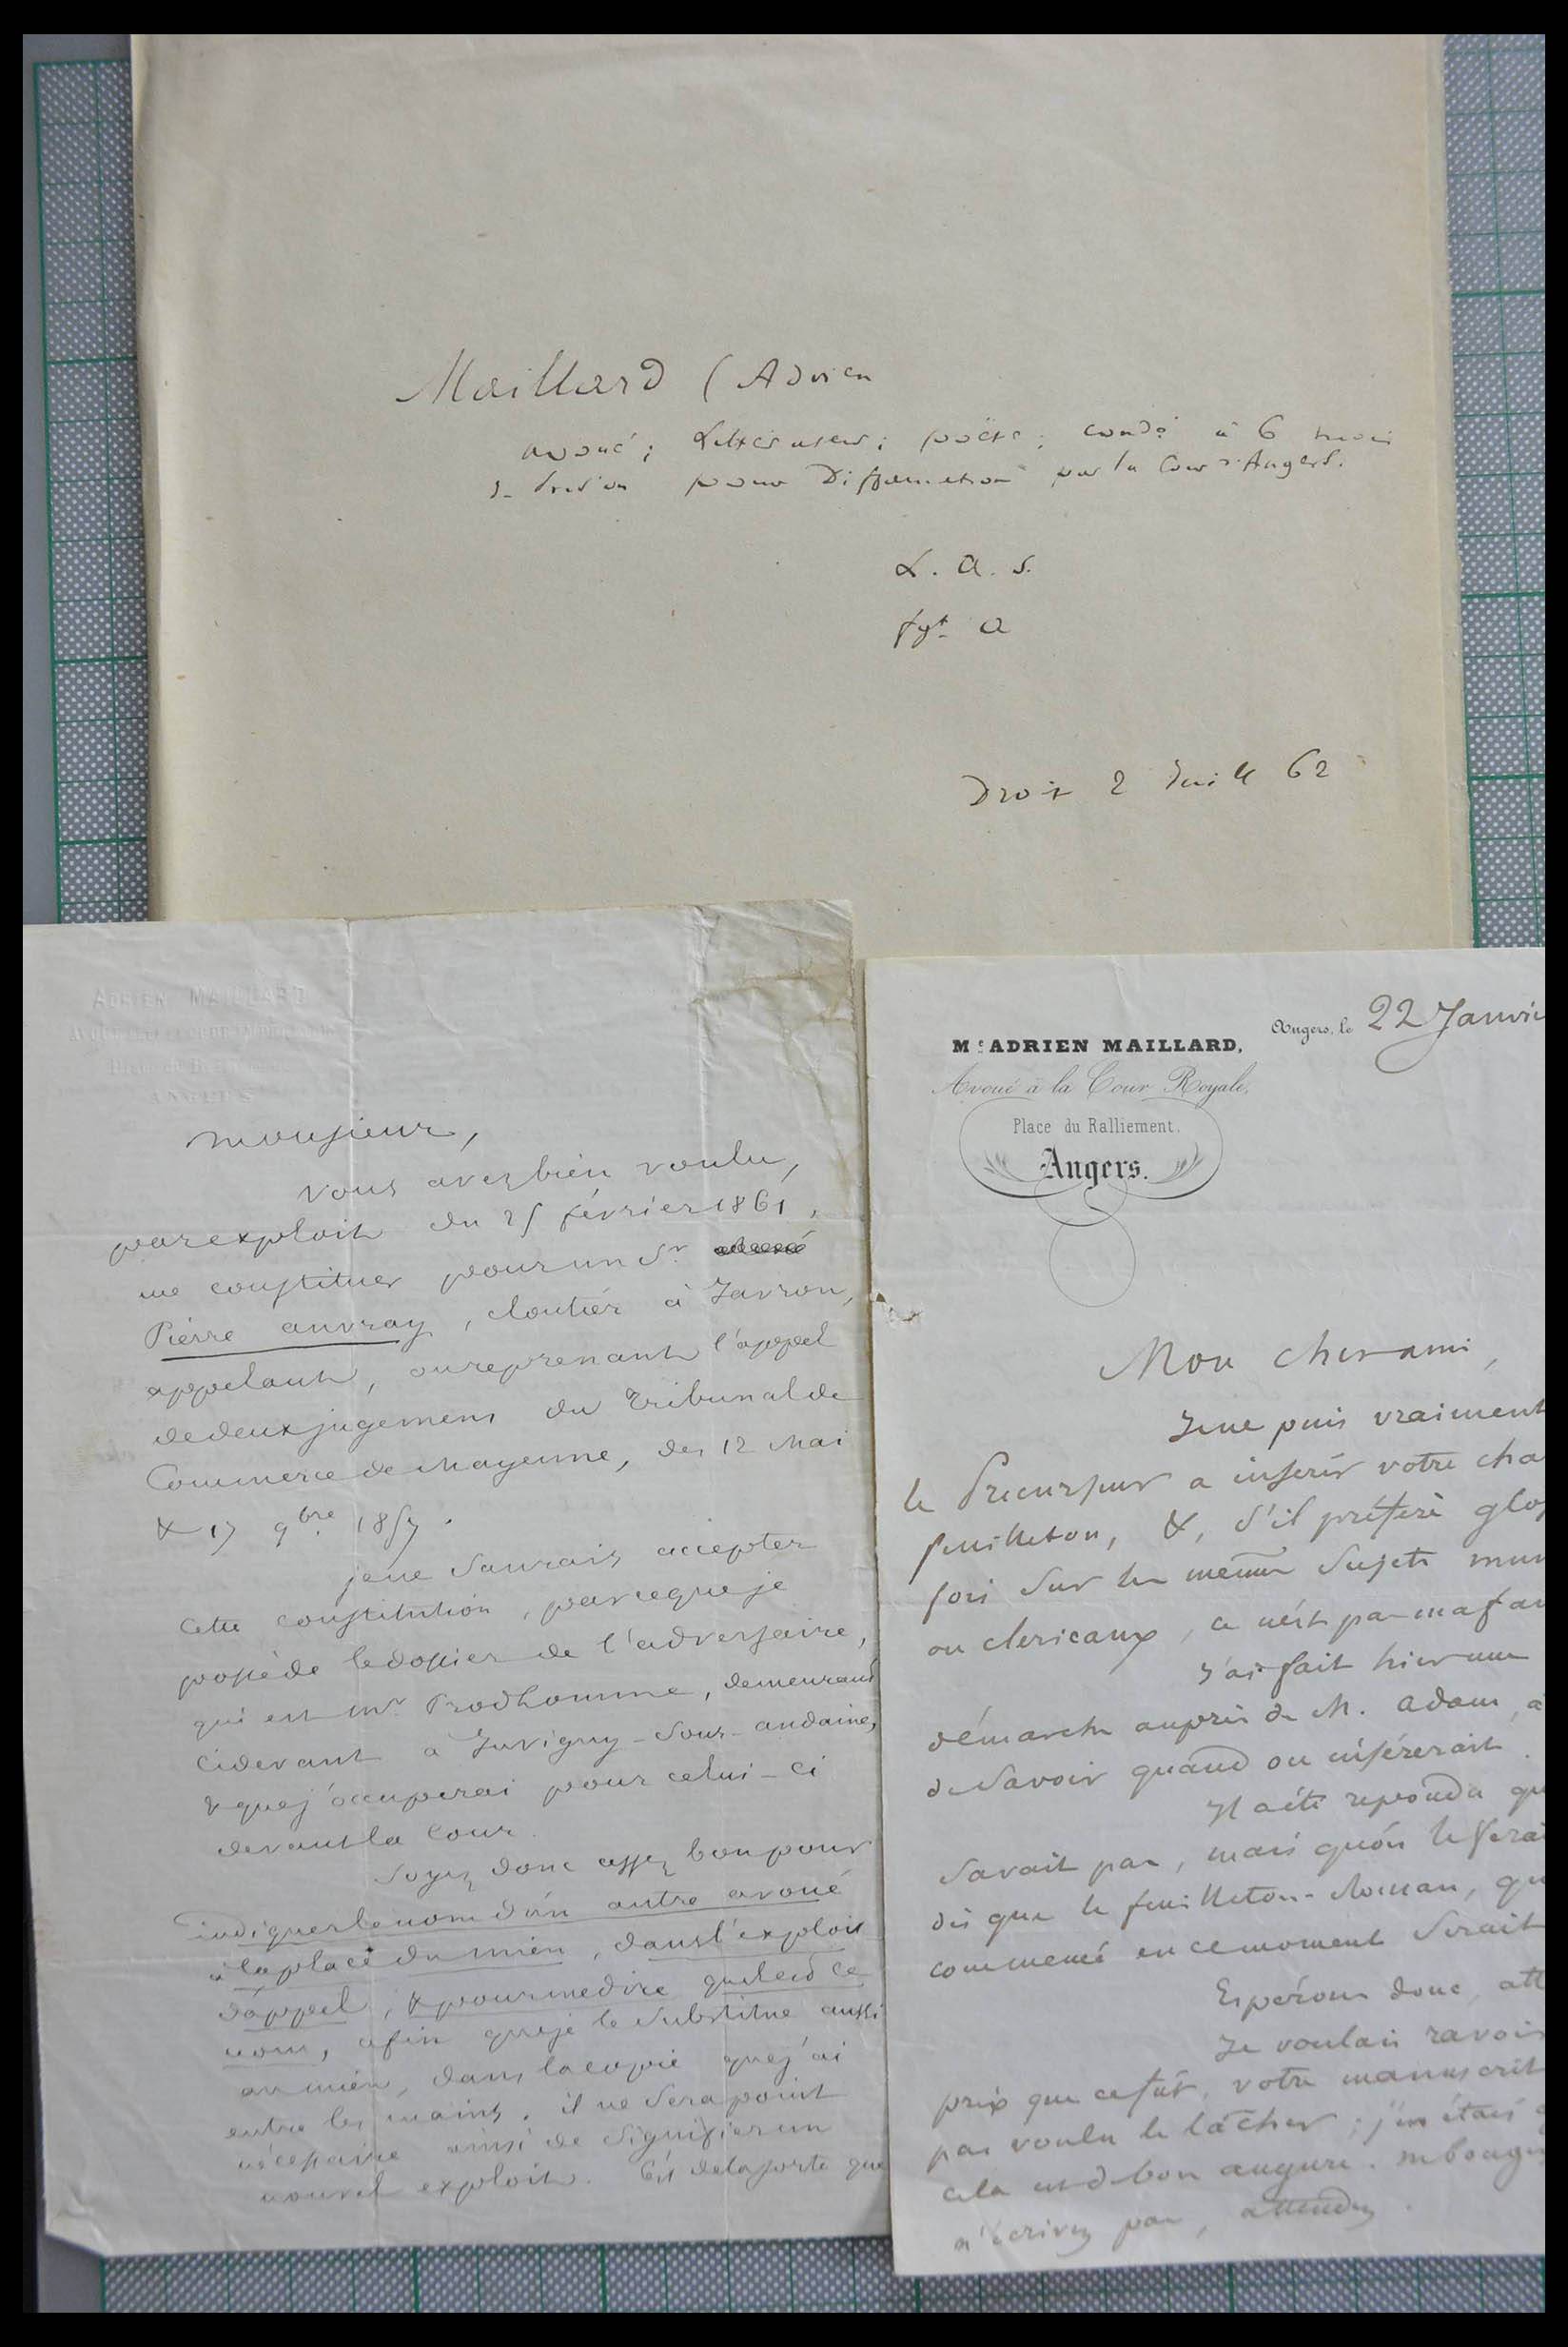 Maillard (Adrien
avoué; Littérateur; poëte; condé à 6 mois
de prison pour Diffamation par la Cour d'Angers.
L. a. s.
fgt a
Droit 2 Juill 62
ADRIEN MAILLARD
ANGERS
Monsieur,
vous avez bien voulu,
par exploit du 25 février 1861,
me constituer pour un Sr.
Pierre auvray, cloutier à Javron,
appelant, ou reprenant l'appel
de deux jugemens du Tribunal de
Commerce de Mayenne, des 12 Mai
& 17 9bre 1857.
je ne saurais accepter
cette constitution, parceque je
possède le dossier de l'adversaire,
qui est Mr Prodhomme, demeurant
cidevant à Juvigny-sous-andaine,
& que j'occuperai pour celui-ci
devant la Cour.
Soyez donc assez bon pour
indiquer le nom d'un autre avoué
à la place du mien, dans l'exploit
d'appel, & pour me dire quel est ce
nom, afin que je le substitue aussi
au mien, dans la copie que j'ai
entre les mains. il ne sera point
nécessaire ainsi de signifier un
nouvel exploit. C'est de la sorte que
Angers, le 22 Janvie
Me ADRIEN MAILLARD,
Avoué à la Cour Royale,
Place du Ralliement.
Angers.
Mon cher ami,
Je ne puis vraiment
le Précurseur a insérer votre cha
feuilleton, &, s'il préfère glo
fois sur les mêmes sujets mun
ou clericaux, ce n'est pas ma fau
J'ai fait hier une
démarche auprès de M. Adam, a
de savoir quand on insérerait.
Il a été répondu qu
savait pas, mais qu'on le ferai
dès que le feuilleton-Roman, qu
commencé en ce moment serait
Espérons donc, att
Je voulais ravoir
prix que ce fût, votre manuscrit
pas voulu le lâcher; j'en étais
cela est de bon augure. ne bouge
n'écrivez pas, attendez.